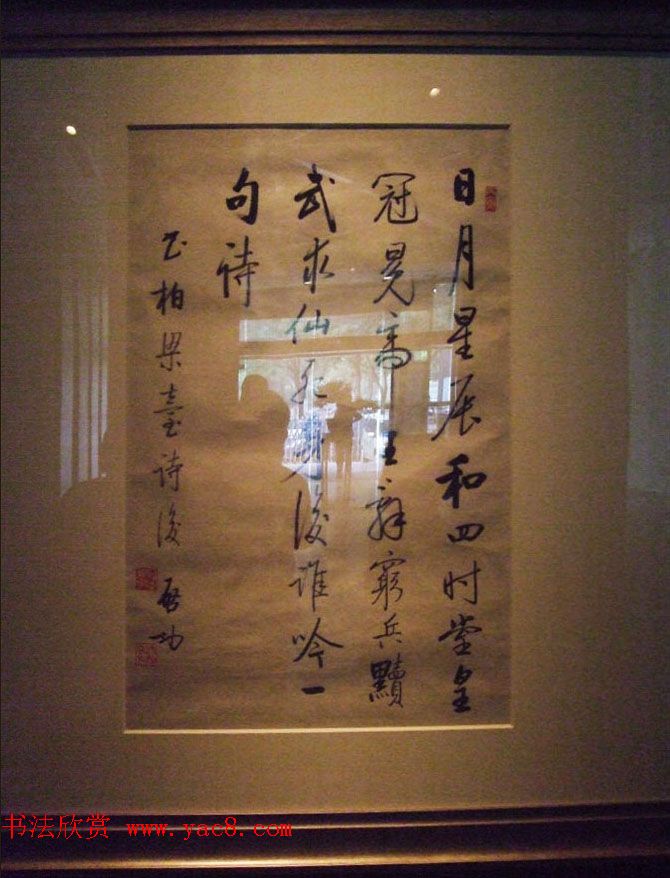 日月星辰和四时堂皇
冠冕帝王辞窮兵黷
武求仙後谁吟一
句诗
书柏梁臺诗後 启功
书法欣赏 www.yac8.com